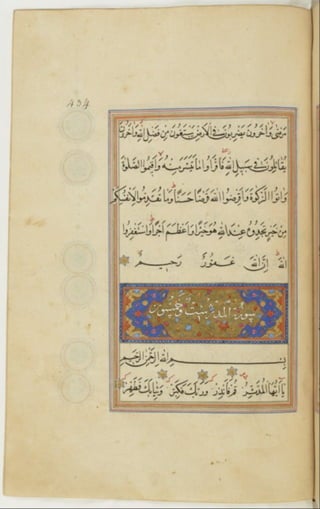 مرضى وآخرون يضربون في الأرض يبتغون من فضل الله وآخرون
يقاتلون في سبيل الله فاقرؤا ما تيسر منه وأقيموا الصلوة
وآتوا الزكوة وأقرضوا الله قرضا حسنا وما تقدموا لأنفسكم
من خير تجدوه عند الله هو خيرا وأعظم أجرا واستغفروا
الله إن الله غفور رحيم
سورة المدثر ست وخمسون
بسم الله الرحمن الرحيم
يا أيها المدثر قم فأنذر وربك فكبر وثيابك فطهر